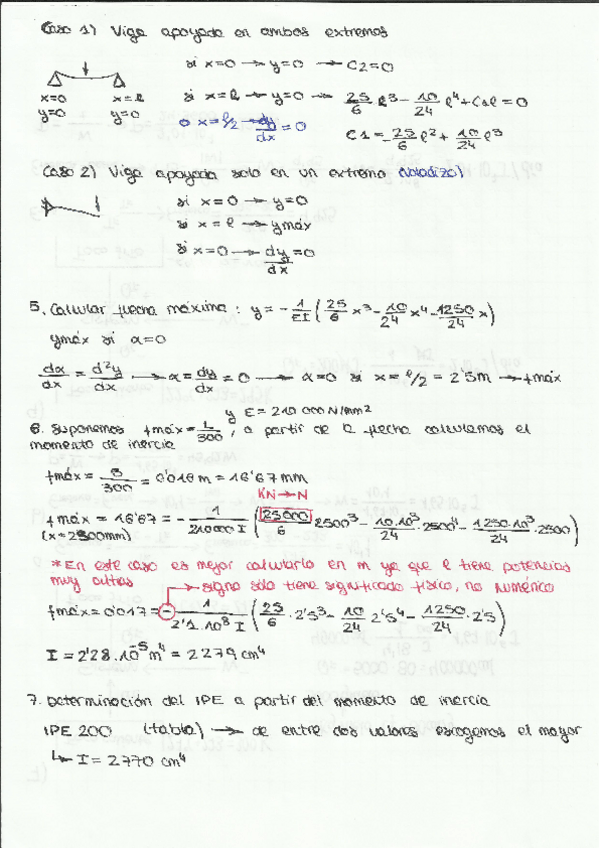 Caso 1) Viga apoyada en ambos extremos
si x=0 → y=0 → C2=0
x=0 x=l
y=0 y=0
si x=l → y=0 → 25/6 l³ - 10/24 l⁴ + C1l = 0
o x=l/2 → dy/dx = 0
C1 = -25/6 l² + 10/24 l³
Caso 2) Viga apoyada solo en un extremo (Voladizo)
si x=0 → y=0
si x=l → ymáx
si x=0 → dy/dx = 0
5. Calcular flecha máxima: y = - 1/EI (25/6 x³ - 10/24 x⁴ - 1250/24 x)
ymáx si α=0
dα/dx = d²y/dx → α = dy/dx = 0 → α=0 si x = l/2 = 2'5m → fmáx
y E = 210 000 N/mm²
6. Suponemos fmáx = L/300, a partir de la flecha calculamos el
momento de inercia
fmáx = 5/300 = 0'016 m = 16'67 mm
KN → N
fmáx = 16'67 = - 1/210000 I (25000/6 2500³ - 10·10³/24 · 2500⁴ - 1250·10³/24 · 2500)
(x=2500mm)
*En este caso es mejor calcularlo en m ya que l tiene potencias
muy altas
→ signo solo tiene significado físico, no numérico
fmáx = 0'017 = - 1/2'1·10⁸ I (25/6 · 2'5³ - 10/24 2'5⁴ - 1250/24 · 2'5)
I = 2'28·10⁻⁵ m⁴ = 2279 cm⁴
7. Determinación del IPE a partir del momento de inercia
IPE 200 (tabla) → de entre dos valores escogemos el mayor
↳ I = 2770 cm⁴